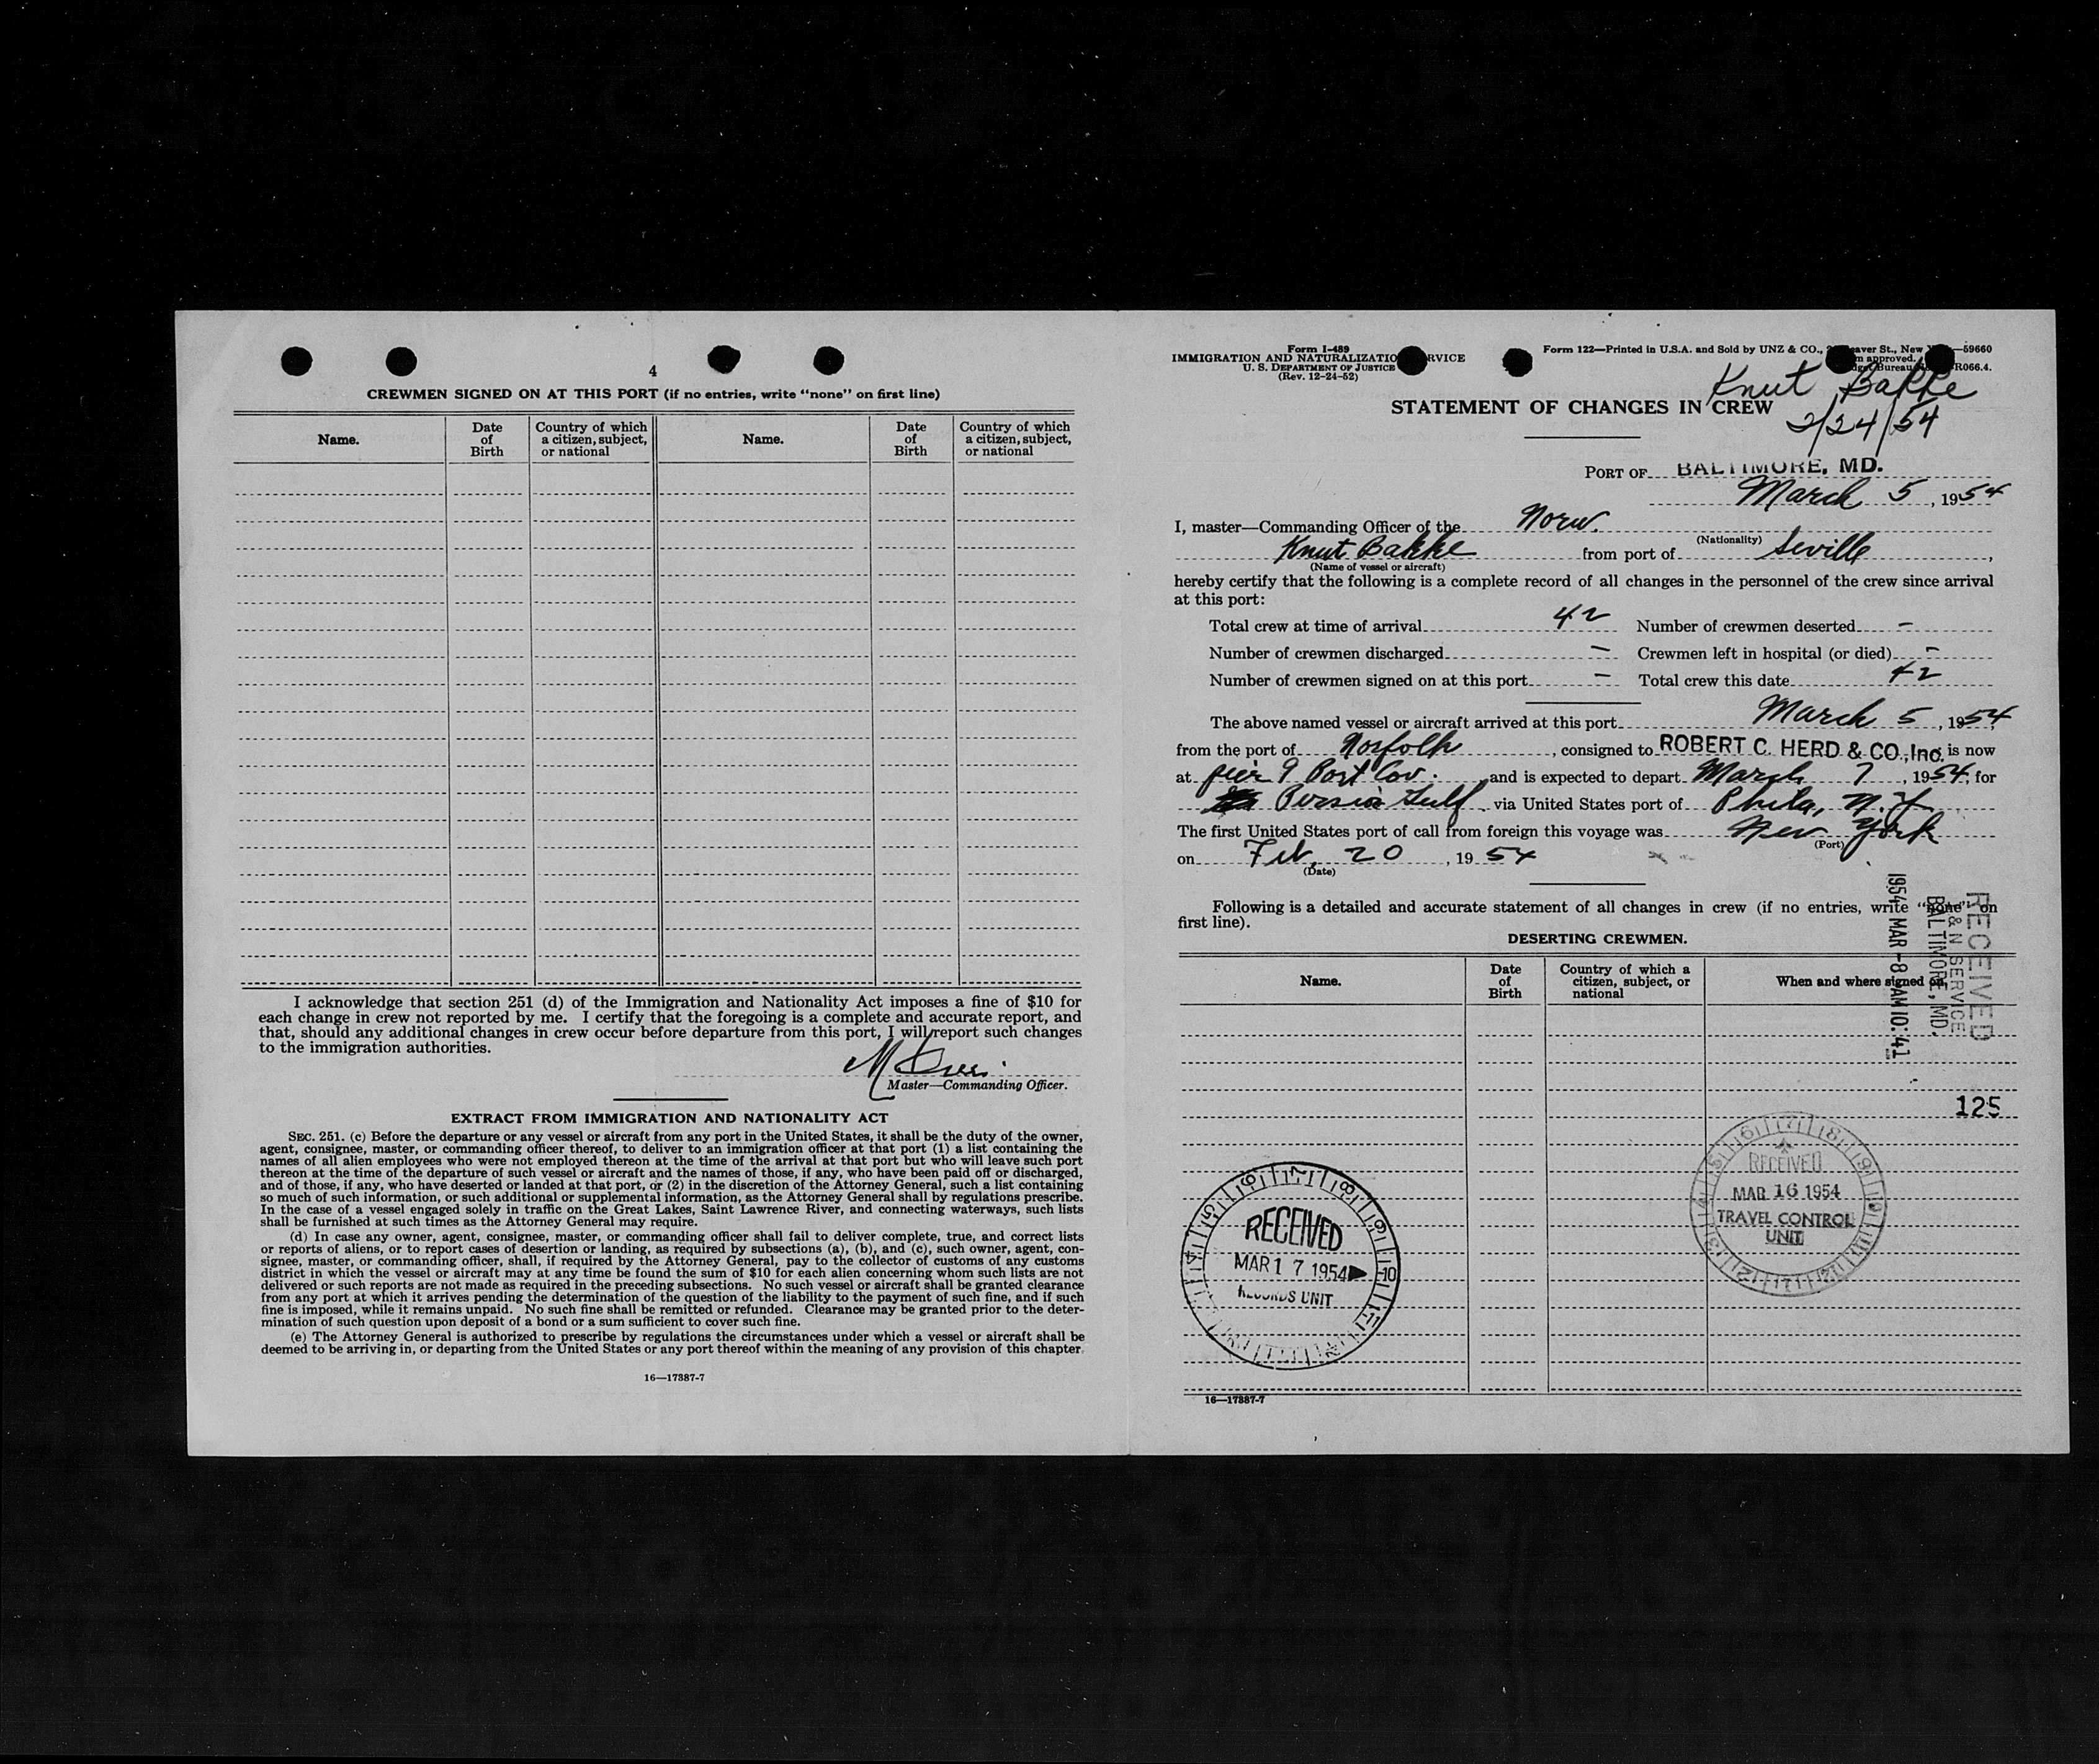 4
CREWMEN SIGNED ON AT THIS PORT (if no entries, write "none" on first line)
Name. Date of Birth Country of which a citizen, subject, or national Name. Date of Birth Country of which a citizen, subject, or national
I acknowledge that section 251 (d) of the Immigration and Nationality Act imposes a fine of $10 for
each change in crew not reported by me. I certify that the foregoing is a complete and accurate report, and
that, should any additional changes in crew occur before departure from this port, I will report such changes
to the immigration authorities.
Master—Commanding Officer.
EXTRACT FROM IMMIGRATION AND NATIONALITY ACT
SEC. 251. (c) Before the departure or any vessel or aircraft from any port in the United States, it shall be the duty of the owner,
agent, consignee, master, or commanding officer thereof, to deliver to an immigration officer at that port (1) a list containing the
names of all alien employees who were not employed thereon at the time of the arrival at that port but who will leave such port
thereon at the time of the departure of such vessel or aircraft and the names of those, if any, who have been paid off or discharged,
and of those, if any, who have deserted or landed at that port, or (2) in the discretion of the Attorney General, such a list containing
so much of such information, or such additional or supplemental information, as the Attorney General shall by regulations prescribe.
In the case of a vessel engaged solely in traffic on the Great Lakes, Saint Lawrence River, and connecting waterways, such lists
shall be furnished at such times as the Attorney General may require.
(d) In case any owner, agent, consignee, master, or commanding officer shall fail to deliver complete, true, and correct lists
or reports of aliens, or to report cases of desertion or landing, as required by subsections (a), (b), and (c), such owner, agent, con-
signee, master, or commanding officer, shall, if required by the Attorney General, pay to the collector of customs of any customs
district in which the vessel or aircraft may at any time be found the sum of $10 for each alien concerning whom such lists are not
delivered or such reports are not made as required in the preceding subsections. No such vessel or aircraft shall be granted clearance
from any port at which it arrives pending the determination of the question of the liability to the payment of such fine, and if such
fine is imposed, while it remains unpaid. No such fine shall be remitted or refunded. Clearance may be granted prior to the deter-
mination of such question upon deposit of a bond or a sum sufficient to cover such fine.
(e) The Attorney General is authorized to prescribe by regulations the circumstances under which a vessel or aircraft shall be
deemed to be arriving in, or departing from the United States or any port thereof within the meaning of any provision of this chapter
16—17887-7
Form I-489
IMMIGRATION AND NATURALIZATIO RVICE
U. S. DEPARTMENT OF JUSTICE
(Rev. 12-24-52)
Form 122—Printed in U.S.A. and Sold by UNZ & CO., eaver St., New —59660
m approved.
Bureau R066.4.
Knut Bakke
2/24/54
STATEMENT OF CHANGES IN CREW
PORT OF BALTIMORE, MD.
March 5, 1954
I, master—Commanding Officer of the Norw.
(Nationality)
Knut Bakke from port of Seville,
(Name of vessel or aircraft)
hereby certify that the following is a complete record of all changes in the personnel of the crew since arrival
at this port:
Total crew at time of arrival 42 Number of crewmen deserted –
Number of crewmen discharged – Crewmen left in hospital (or died) –
Number of crewmen signed on at this port – Total crew this date 42
The above named vessel or aircraft arrived at this port March 5, 1954,
from the port of Norfolk, consigned to ROBERT C. HERD & CO., Inc. is now
at pier 9 Port Cov. and is expected to depart March 7, 1954, for
Persia Gulf via United States port of Phila, N.Y.
The first United States port of call from foreign this voyage was New York
(Port)
on Feb. 20, 1954
(Date)
Following is a detailed and accurate statement of all changes in crew (if no entries, write "none" on
first line).
DESERTING CREWMEN.
Name. Date of Birth Country of which a citizen, subject, or national When and where signed on
RECEIVED
I & N SERVICE
BALTIMORE, MD.
1954 MAR -8 AM 10:41
125
RECEIVED
MAR 16 1954
TRAVEL CONTROL
UNIT
RECEIVED
MAR 17 1954
RECORDS UNIT
16—17887-7